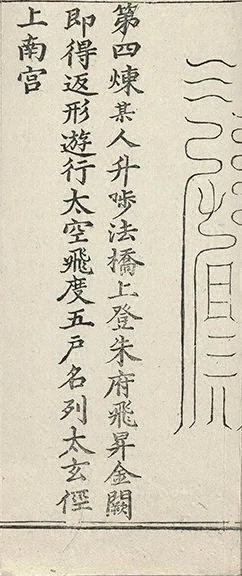 第四煉某人升哕法橋上登朱府飛昇金闕
即得返形遊行太空飛度五戸名列太玄俓
上南宫